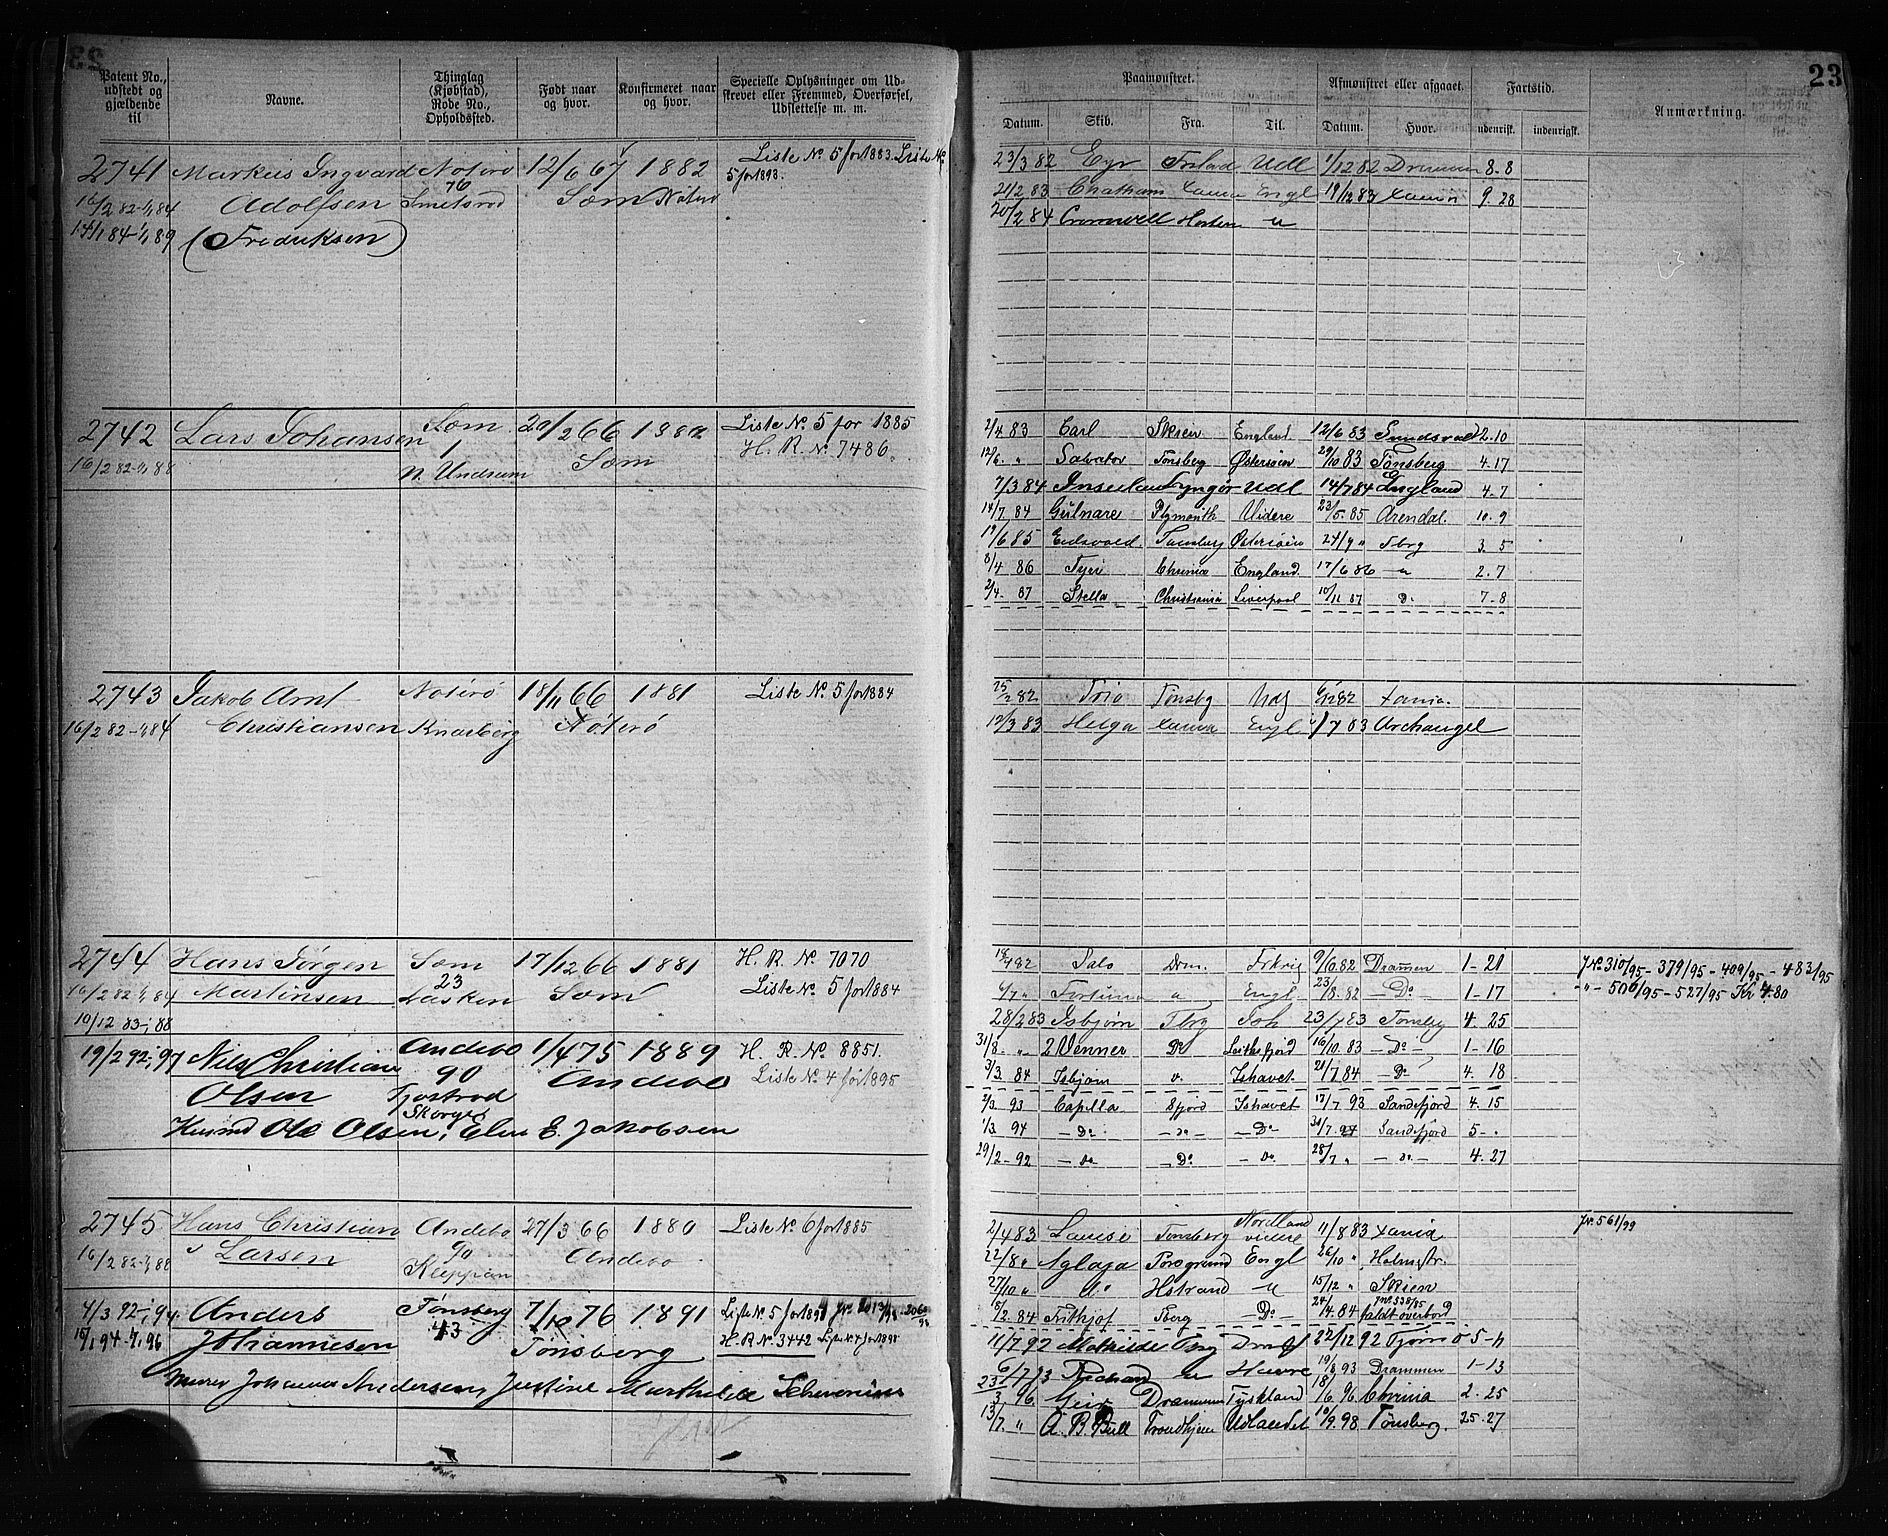 23
Patent No., udstedt og gjældende til
Navne.
Thinglag (Kjøbstad), Rode No., Opholdssted.
Født naar og hvor.
Konfirmeret naar og hvor.
Specielle Oplysninger om Udskrevet eller Fremmed, Overførsel, Udslettelse m. m.
2741 Markus Ingvard Nøterø 12/6 67 1882 Liste No 5 for 1883. Liste No
76 5 for 1893.
16/2 82-1/1 84 Adolfsen Smidsrød Sæm Nøterø
14/1 84-1/1 89 (Fredriksen)
2742 Lars Johansen Sæm 20/2 66 1882 Liste No 5 for 1885
1 H. R. No 7486
16/2 82-1/1 88 N. Undrum Sæm
2743 Jakob Arnt Nøterø 18/11 66 1881 Liste No 5 for 1884
16/2 82-1/1 84 Christiansen Knarberg Nøterø
2744 Hans Jørgen Sæm 17/12 66 1881 H. R. No 7070
23
16/2 82-1/1 84 Martinsen Sæm Liste No 5 for 1884
10/12 83-1/1 88
19/2 92-1/1 97 Nils Christian Andebo 1/4 75 1889 H. R. No 8851.
Olsen 90 Andebo Liste No 4 for 1895
Husmd Ole Olsen, Elen E. Jakobsen
2745 Hans Christian Andebo 27/3 66 1880 Liste No 6 for 1885
16/2 82-1/1 88 Larsen 90 Andebo
4/3 92-1/1 94 Anders Tønsberg 7/10 76 1891
43
15/1 94-1/1 96 Johannesen Tønsberg H. R No 3442
Murer Johannes Andersen, Justine Mathilde
23
Paamønstret.
Afmønstret eller afgaaet.
Fartstid.
Anmærkning.
Datum. Skib. Fra. Til. Datum. Hvor. udenrisk. indenrigsk.
23/3 82 Eyr Frstad Udl 1/12 82 Drammen 8.8
21/2 83 Chatham Xania Engl 19/12 83 Xania 9.28
20/2 84 Cromwell Horten "
2/4 83 Earl Skien England 12/6 83 Sundsvald 2.10
12/6 " Salvator Tønsberg Østersøen 29/10 83 Tønsberg 4.17
7/3 84 Lyngør Udl 14/7 84 England 4.7
14/7 84 Gülnare Plymouth Videre 23/5 85 Arendal. 10.9
19/6 85 Eidsvold Tønsberg Østersøen 24/9 " Tbrg 3.5
8/4 86 Chrinia England 17/6 86 " 2.7
2/4 87 Stella Christiania Liverpool 10/11 87 Do 7-8
25/2 82 Trio Tønsbg Udl Xania.
12/3 83 Helga Xania Engl 1/7 83 Archangel
18/4 82 Salo Drm. Frkrig 9/6 82 Drammen 1-21 Jno 310/95 - 379/95 - 409/95 - 483/95
6/7 " Fortuna " Engl 23/8 82 -Do- 1-17 -"- 506/95 - 527/95 Kr 4.80
28/2 83 Isbjørn Tbrg Ish 23/7 83 Tønsbg 4.25
31/8 " 2 Venner Do 16/10 83 -Do- 1-16
3/3 84 Isbjørn " Ishavet 21/7 84 -Do- 4.18
2/3 93 Capella Sfjord Ishavet 17/7 93 Sandefjord 4.15
1/3 94 -Do- -Do- -Do- 31/7 94 Sandefjord 5-.
29/2-92 -Do- -Do- -Do 28/7 " -Do- 4.27
2/4 83 Louise Tønsberg Nordland videre 11/8 83 Xania Jno 561/99
22/8 " Aglaja Porsgrund Engl 26/10 " Holmestr.
27/10 " Do Hstrand " 15/12 " Skien
15/2 84 Frithjof Tberg Do 24/4 84 faldt overbord
11/7 92 Mathilde 22/12 92 Tjømø 5-11
6/7 93 Richard " Havre 19/8 93 Drammen 1-13
23/3 96 Geir Drammen Tyskland 18/6 96 Chrinia 2.25
13/7 " A. B. Bull Trondhjem Udlandet 10/9 98 Tønsberg. 25.27